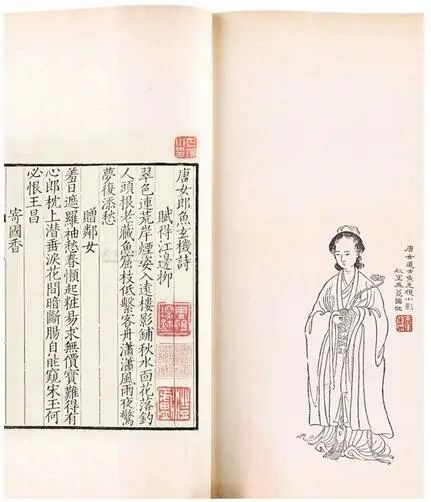 唐女道士魚玄機小影
秋室為蕘圃
唐女郎魚玄機詩
賦得江邊柳
翠色連荒岸煙姿入遠樓影鋪秋水面花落釣
人頭根老藏魚窟枝低繫客舟瀟瀟風雨夜驚
夢復添愁
贈鄰女
羞日遮羅袖愁春懶起粧易求無價寶難得有
心郎枕上潜垂淚花間暗斷腸自能窺宋玉何
必恨王昌
寄國香